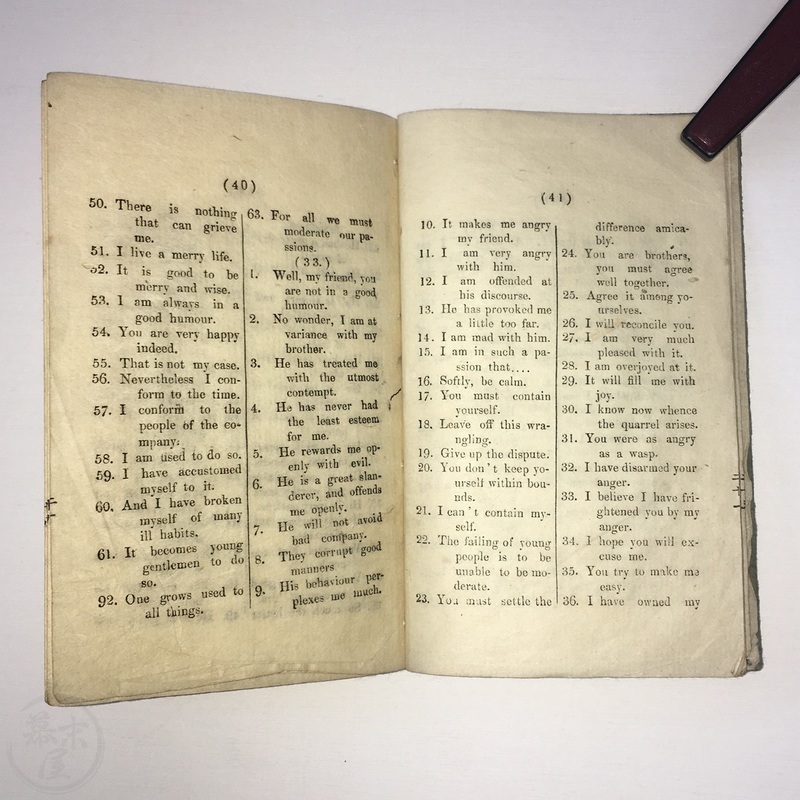 (40)
50. There is nothing
that can grieve
me.
51. I live a merry life.
52. It is good to be
merry and wise.
53. I am always in a
good humour.
54. You are very happy
indeed.
55. That is not my case.
56. Nevertheless I con-
form to the time.
57. I conform to the
people of the co-
mpany:
58. I am used to do so.
59. I have accustomed
myself to it.
60. And I have broken
myself of many
ill habits.
61. It becomes young
gentlemen to do
so.
92. One grows used to
all things.
63. For all we must
moderate our pa-
ssions.
(33.)
1. Well, my friend, you
are not in a good
humour.
2. No wonder, I am at
variance with my
brother.
3. He has treated me
with the utmost
contempt.
4. He has never had
the least esteem
for me.
5. He rewards me op-
enly with evil.
6. He is a great slan-
derer, and offends
me openly.
7. He will not avoid
bad company.
8. They corrupt good
manners
9. His behaviour per-
plexes me much.
(41)
10. It makes me angry
my friend.
11. I am very angry
with him.
12. I am offended at
his discourse.
13. He has provoked me
a little too far.
14. I am mad with him.
15. I am in such a pa-
ssion that....
16. Softly, be calm.
17. You must contain
yourself.
18. Leave off this wra-
ngling.
19. Give up the dispute.
20. You don't keep yo-
urself within bou-
nds.
21. I can't contain my-
self.
22. The failing of young
people is to be
unable to be mo-
derate.
23. You must settle the
difference amica-
bly.
24. You are brothers,
you must agree
well together.
25. Agree it among yo-
urselves.
26. I will reconcile you.
27. I am very much
pleased with it.
28. I am overjoyed at it.
29. It will fill me with
joy.
30. I know now whence
the quarrel arises.
31. You were as angry
as a wasp.
32. I have disarmed your
anger.
33. I believe I have fri-
ghtened you by my
anger.
34. I hope you will ex-
cuse me.
35. You try to make me
easy.
36. I have owned my
幕末屋